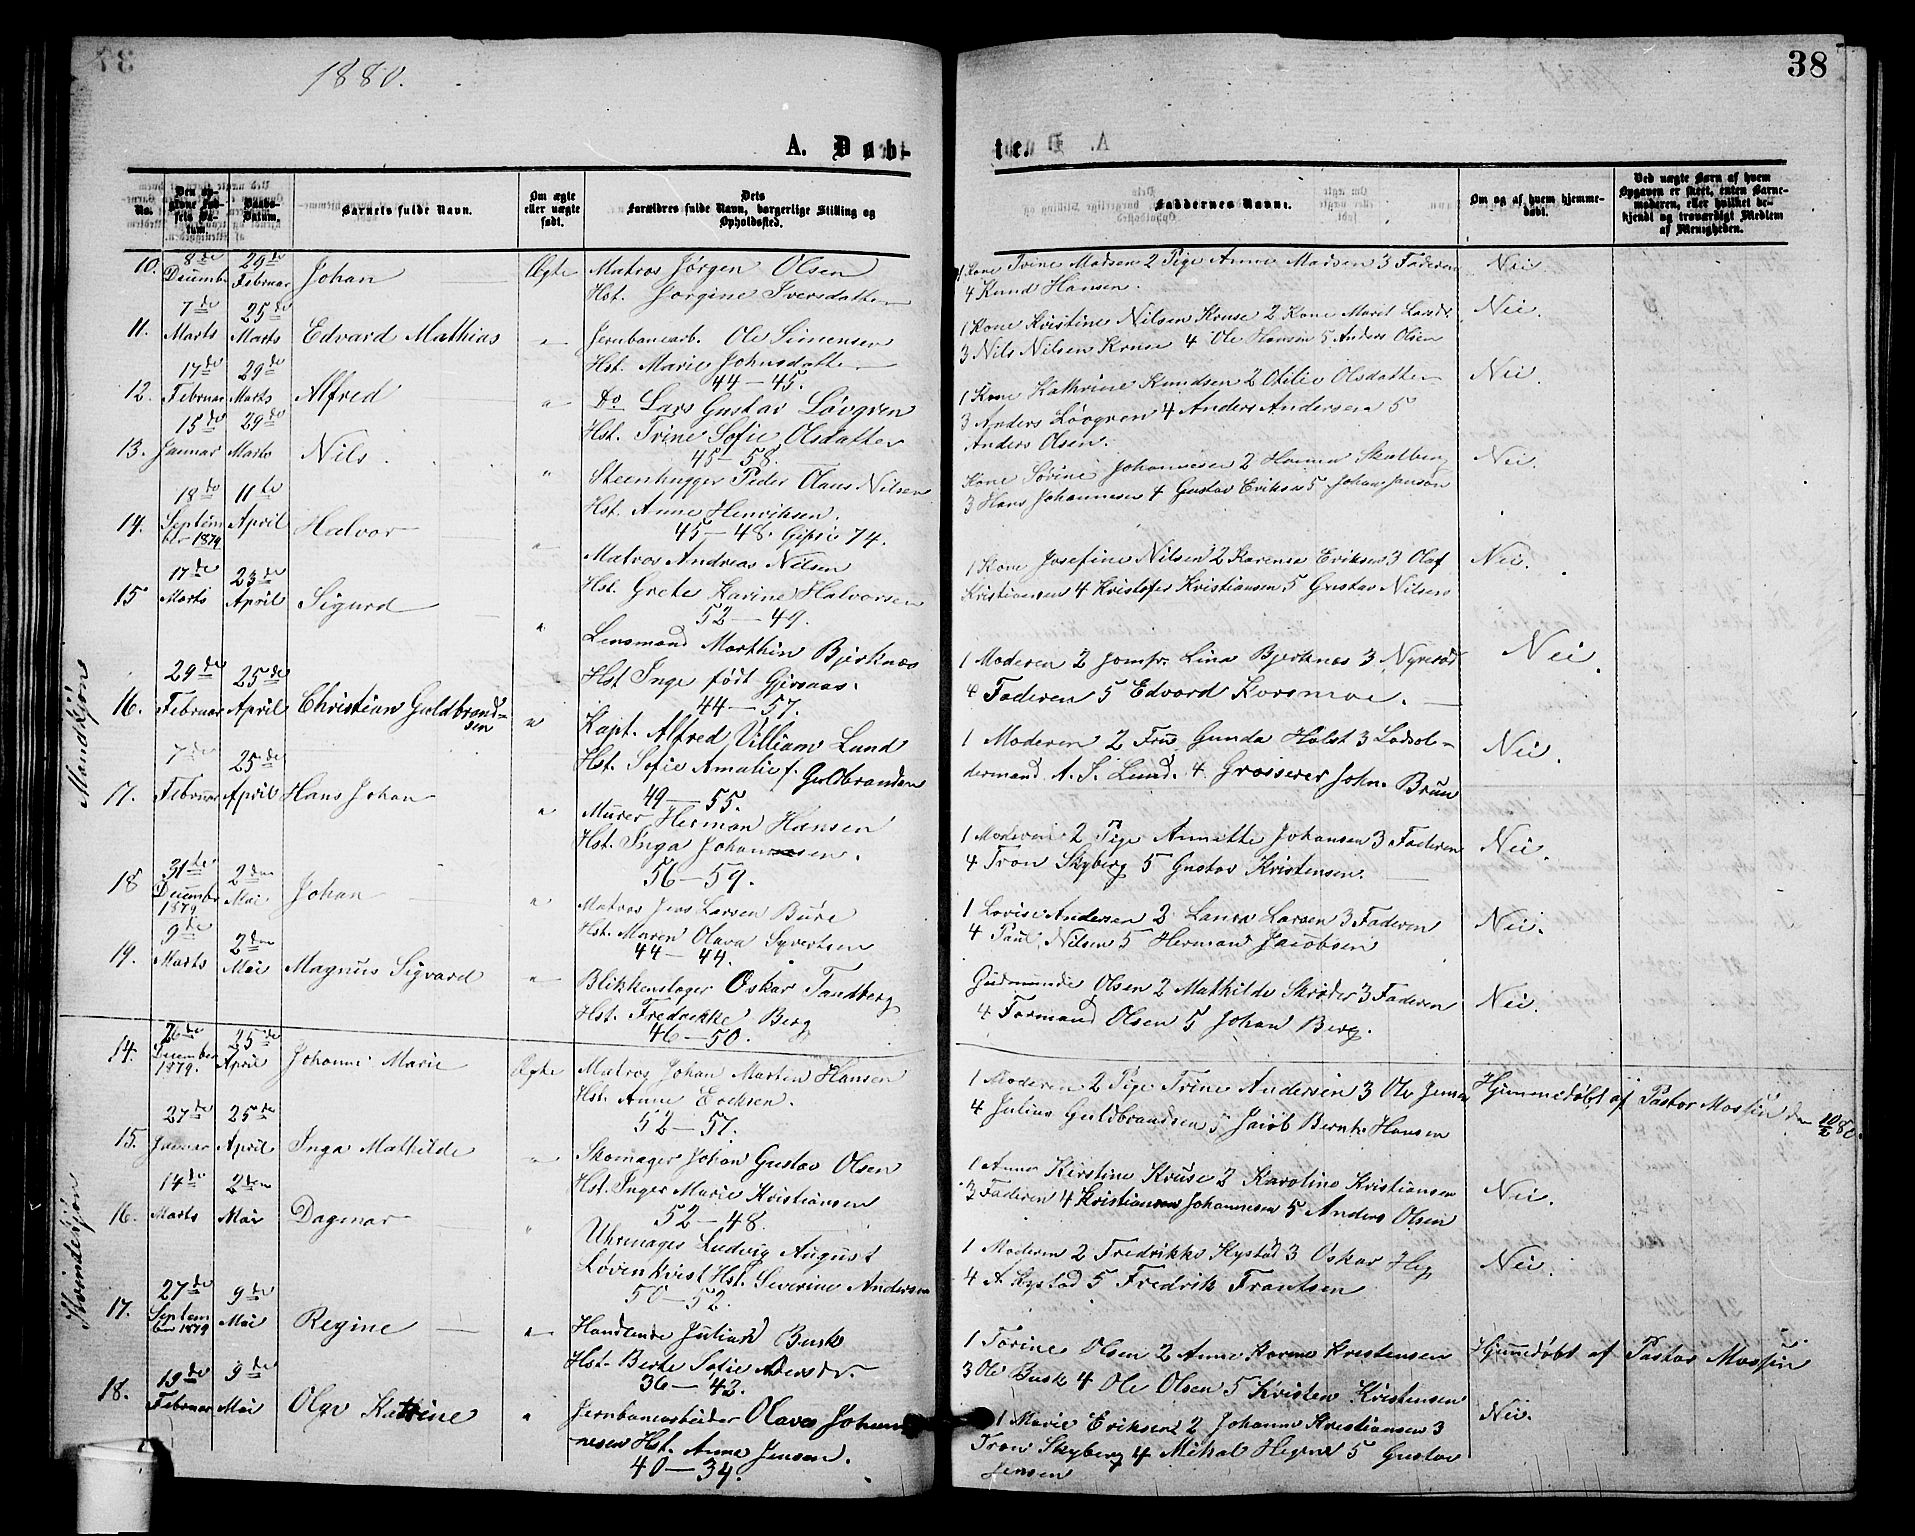 1880.
38
A. Døb-
te.
No.
Den opgivne Fødsels Datum.
Daabs-Datum.
Barnets fulde Navn.
Om ægte eller uægte født.
Dets Forældres fulde Navn, borgerlige Stilling og Opholdssted.
Faddernes Navne.
Om og af hvem hjemmedøbt.
Ved uægte Børn af hvem Opgaven er skeet, enten Barnemoderen, eller hvilket bekjendt og troværdigt Medlem af Menigheden.
Mandkjøn
10. 8de Decembr 29de Februar Johan Ægte Matros Jørgen Olsen
Hst. Jørgine Iversdatter
1 Kone Trine Madsen 2 Pige Anne Madsen 3 Faderen
4 Knud Hansen.
Nei.
11. 7de Marts 25de Marts Edvard Mathias " Jernbanearb. Ole Simensen
Hst. Marie Johnsdatter
44–45.
1 Kone Kristine Nilsen Kruse 2 Kone Marit Larsdr
3 Nils Nilsen Kruse 4 Ole Hansen 5 Anders Olsen
Nei.
12. 17de Februar 29de Marts Alfred " Do Lars Gustav Løvgren
Hst. Trine Sofie Olsdatter
45–58.
1 Kone Kathrine Knudsen 2 Otilie Olsdatter
3 Anders Løvgren 4 Anders Andersen 5
Anders Olsen.
Nei.
13. 15de Januar 29de Marts Nils. " Steenhugger Peder Olaus Nilsen
Hst. Anne Henriksen.
45–48. Gipsie 74.
Kone Sørine Johannesen 2 Hanna Skalberg
3 Hans Johannesen 4 Gustav Eriksen 5 Johan Jonson
Nei.
14. 18de September 1879 11te April Halvor " Matros Andreas Nilsen
Hst. Grete Karine Halvorsen
52–49.
1 Kone Josefine Nilsen 2 Karense Eriksen 3 Olaf
Kristiansen 4 Kristofer Kristiansen 5 Gustav Nilsen
Nei.
15 17de Marts 23de April Sigurd " Lensmand Marthin Bjerknæs
Hst Inge født Gjersaas.
44–57.
1 Moderen 2 Jomfr. Lina Bjerknæs 3
4 Faderen 5 Edvard Korsmoe.
Nei.
16. 29de Februar 25de April Christian Guldbrandsen " Kapt. Alfred Villiam Lund
Hst. Sofie Amalie f. Guldbrandsen
49–55.
1 Moderen 2 Fru Gunda Holst 3 Lodsol-
dermand A. S. Lund. 4. Grosserer John. Bruun
Nei.
17. 7de Februar 25de April Hans Johan " Murer Herman Hansen
Hst. Inga Johannesen.
56–59.
1 Moderen 2 Pige Annette Johansen 3 Faderen
4 Tron Skyberg 5 Gustav Kristensen.
Nei.
18 31te Decembr 1879 2den Mai Johan " Matros Jens Larsen Bure
Hst. Maren Olava Syvertsen
44–44.
1 Lovise Andersen 2 Laura Larsen 3 Faderen
4 Paul Nilsen 5 Herman Jacobsen
Nei.
19. 9de Marts 2den Mai Magnus Sigvard " Blikkenslager Oskar Tandberg
Hst. Fredrikke Berg
46–50.
Gudmunde Olsen 2 Mathilde Skrøder 3 Faderen
4 Formand Olsen 5 Johan Berg.
Nei.
Kvindekjøn
14. 26de December 1879. 25de April Johanne Marie Ægte Matros Johan Morten Hansen
Hst. Anne Eriksen.
52–57.
1 Moderen 2 Pige Trine Andersen 3 Ole Jensen
4 Julius Guldbrandsen 5 Jacob Bernh. Hansen
Hjemmedøbt af Pastor Mossin den 10/2 80.
15. 27de Januar 25de April Inga Mathilde " Skomager Johan Gustav Olsen
Hst. Inger Marie Kristiansen
52–48.
1 Anna Kirstine Kruse 2 Karoline Kristiansen
3 Faderen 4 Kristiansen Johannesen 5 Anders Olsen
Nei.
16. 14de Marts 2den Mai Dagmar " Uhrmager Ludvig August
Løvenkvist Hst. Severine Andersen
50–52.
1 Moderen 2 Fredrikke Kystad 3 Oskar Heg
4 A Kystad 5 Fredrik Frantsen
Nei.
17. 27de September 1879 9de Mai Regine " Handlende Julius Busk
Hst. Berte Sofie
36–43.
1 Torine Olsen 2 Anne Karine Kristensen
3 Ole Busk 4 Ole Olsen 5 Kristen Kristensen
Hjemmedøbt af Pastor Mossin
18. 19de Februar 9de Mai Olga Katrine " Jernbanearbeider Olaves Johan-
nesen Hst. Anne Jensen.
40–34.
1 Marie Eriksen 2 Johanne Kristiansen 3
Tron Skyberg 4 Mikal Hegna 5 Gustav
Jensen
Nei.